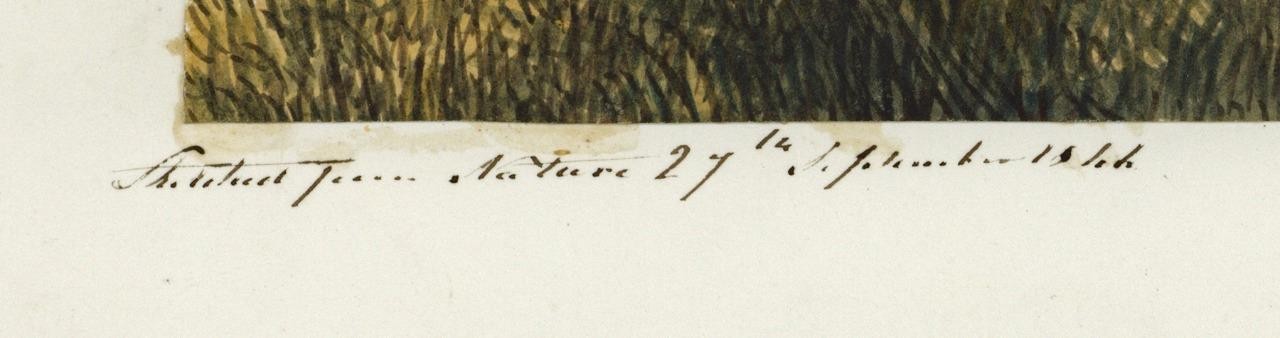 Sketched from Nature 27th September 1844